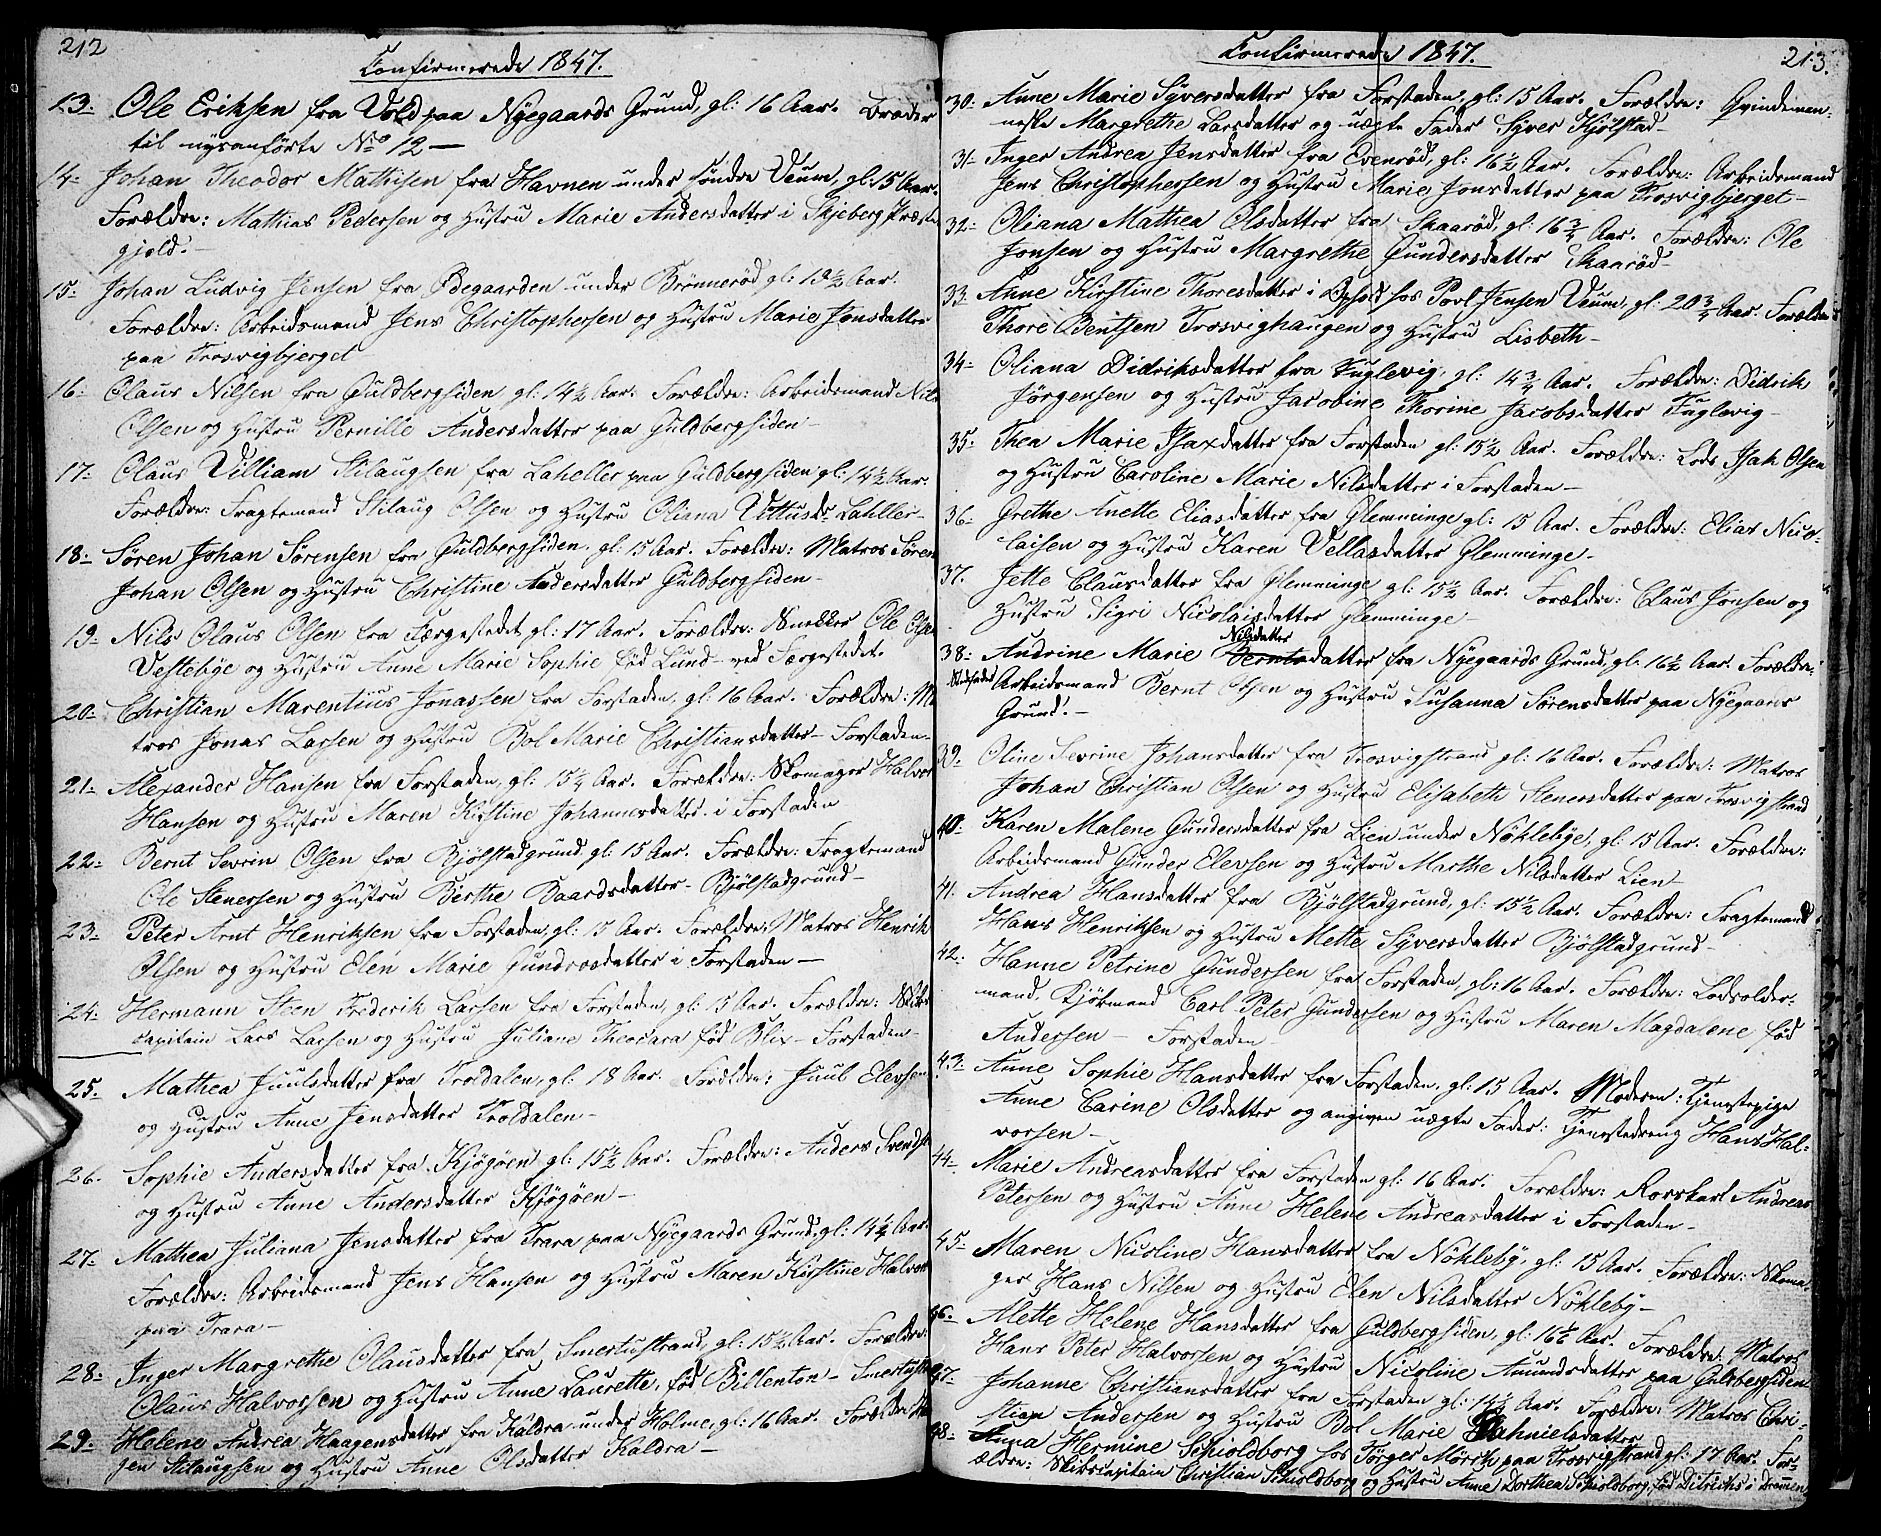 212
Confirmerede 1847.
13. Ole Eriksen fra Vold paa Nyegaards Grund, gl: 16 Aar. Broder
til nysanførte No 12 —
14. Johan Theodor Mathisen fra Havnen under søndre Veum, gl: 15 Aar.
Forældre: Mathias Pedersen og Hustru Marie Andersdatter i Skjeberg Præste
gjeld. —
15. Johan Ludvig Jensen fra Ødegaarden under gl: Aar.
Forældre: Arbeidsmand Jens Christophersen og Hustru Marie Jonsdatter
paa Trosvigbjerget
16. Claus Nilsen fra Guldbergsiden gl: 14½ Aar. Forældre: Arbeidsmand Nils
Olsen og Hustru Pernille Andersdatter paa Guldbergsiden —
17. Claus Villiam Stilaugsen fra Laheller paa Guldbergsiden gl: 14½ Aar.
Forældre: Fragtemand Stilaug Olsen og Hustru Oliana
18. Søren Johan Sørensen fra Guldbergsiden, gl: 15 Aar. Forældre: Matros Søren
Johan Olsen og Hustru Christine Andersdatter Guldbergsiden —
19. Nils Claus Olsen fra Færgestedet gl: 17 Aar. Forældre: Snekker Ole Olsen
Vestebye og Hustru Anne Marie Sophie fød Lund — ved Færgestedet.
20. Christian Marentius Jonassen fra Forstaden, gl: 16 Aar. Forældre: Ma
tros Jonas Larsen og Hustru Bol Marie Christiansdatter — Forstaden —
21. Alexander Hansen fra Forstaden, gl: Aar. Forældre: Skomager Halvor
Hansen og Hustru Maren Kirstine Johannesdatter i Forstaden
22. Bernt Sevrin Olsen fra Bjølstadgrund gl: 15 Aar. Forældre: Fragtemand
Ole Stenersen og Hustru Berthe Baardsdatter — Bjølstadgrund —
23. Peter Arnt Henriksen fra Forstaden, gl: 15 Aar. Forældre: Matros Henrik
Olsen og Hustru Elen Marie i Forstaden —
24. Hermann Steen Frederik Larsen fra Forstaden, gl: 15 Aar. Forældre: Skibs
capitain Lars Larsen og Hustru Juliane Theodara fød Blix — Forstaden —
25. Mathea Juulsdatter fra Troldalen, gl: 18 Aar. Forældre: Juul Elevsen
og Hustru Anne Jensdatter Troldalen —
26. Sophie Andersdatter fra Kjøgøen gl: 15½ Aar. Forældre: Anders Svends
og Hustru Anne Andersdatter Kjøgøen —
27. Mathea Juliana Jensdatter fra Trara paa Nyegaards Grund, gl: Aar.
Forældre: Arbeidsmand Jens Hansen og Hustru Maren Kirstine Halvors
paa Trara —
28. Inger Margrethe Clausdatter fra Smertustrand, gl: 15½ Aar. Forældre:
Claus Halvorsen og Hustru Anne Laurette, fød Billenton —
29. Helene Andrea Haagensdatter fra Kaldra under Holme, gl: 16 Aar. Forældre: Haa
gen Stilaugsen og Hustru Anne Olsdatter Kaldra —
213.
Confirmerede 1847.
30. Anne Marie Syversdatter fra Forstaden, gl: 15 Aar. Forældre: Qvindemen:
neske Margrethe Larsdatter og uægte Fader Syver Kjølstad —
31. Inger Andrea Jensdatter fra Evenrød, gl: 16½ Aar. Forældre: Arbeidsmand
Jens Christophersen og Hustru Marie Jonsdatter paa Trosvigbjerget —
32. Oliana Mathea Olsdatter fra Skaarød, gl: 16¾ Aar. Forældre: Ole
Jonsen og Hustru Margrethe Gundersdatter Skaarød —
33. Anne Kirstine Thoresdatter i Ophold hos Povl Jensen Veum, gl: 20¾ Aar. Forældre:
Thore Bentsen Trosvighaugen og Hustru Lisbeth —
34. Oliana Didriksdatter fra Fuglevig, gl: 14¾ Aar. Forældre: Didrik
Jörgensen og Hustru Jacobine Thorine Jacobsdatter Fuglevig —
35. Thea Marie Isaxdatter fra Forstaden gl: 15½ Aar. Forældre: Lods Isak Olsen
og Hustru Caroline Marie Nilsdatter i Forstaden —
36. Grethe Anette Eliasdatter fra Glemminge gl: 15 Aar. Forældre: Elias Nico-
laisen og Hustru Karen Vellasdatter Glemminge —
37. Jette Clausdatter fra Glemminge gl: 15½ Aar. Forældre: Claus Jonsen og
Hustru Sigri Nicolaisdatter Glemminge —
Nilsdatter
38. Andrine Marie Berntsdatter fra Nyegaards Grund, gl: 16½ Aar. Forældre:
Stedfader Arbeidsmand Bernt Olsen og Hustru Susanna Sørensdatter paa Nyegaards
Grund. —
39. Oline Sevrine Johansdatter fra Trosvigstrand gl: 16 Aar. Forældre: Matros
Johan Christian Olsen og Hustru Elisabeth Stenersdatter paa Trosvigstrand
40. Karen Malene Gundersdatter fra Lien under Nöklebye, gl: 15 Aar. Forældre:
Arbeidsmand Gunder Elevsen og Hustru Marthe Nilsdatter Lien —
41. Andrea Hansdatter fra Bjølstadgrund, gl: 15½ Aar. Forældre: Fragtemand
Hans Henriksen og Hustru Mette Syversdatter Bjølstadgrund —
42. Hanne Petrine Gundersen fra Forstaden, gl: 16 Aar. Forældre: Lodsolder-
mand, Kjöbmand Carl Peter Gundersen og Hustru Maren Magdalene fød
Andersen — Forstaden —
43. Anne Sophie Hansdatter fra Forstaden, gl: 15 Aar. Moderen: Tjenestepige
Anne Carine Olsdatter og angiven uægte Fader: Tjenestedreng Hans Hal-
vorsen —
44. Marie Andreasdatter fra Forstaden gl: 16 Aar. Forældre: Rorskarl Andreas
Petersen og Hustru Anne Helene Andreasdatter i Forstaden —
45. Maren Nicoline Hansdatter fra Nökleby, gl: 15 Aar. Forældre: Skoma-
ger Hans Nilsen og Hustru Elen Nilsdatter Nökleby —
46. Alette Helene Hansdatter fra Guldbergsiden, gl: 16½ Aar. Forældre: Matros
Hans Peter Halvorsen og Hustru Nicoline Amundsdatter paa Guldbergsiden
47. Johanne Christiansdatter fra Forstaden gl: 14½ Aar. Forældre: Matros Chri-
stian Andersen og Hustru Bol Marie
48. Anna Hermine Schioldborg hos Jörger Mörch paa Trosvigstrand gl: 17 Aar. For-
ældre: Skibscapitain Christian Schioldborg og Hustru Anne Dorthea Schioldborg, fød Ditrichs i Drammen